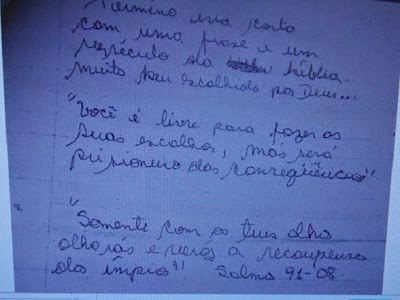 Termino essa carta
com uma frase e um
versículo da bíblia
muito bem escolhido por Deus...
"Você é livre para fazer as
suas escolhas, mas será
prisioneiro das conseqüências"
"Somente com os teus olho
olharás e verás a recompensa
dos ímpio" Salmo 91-08.